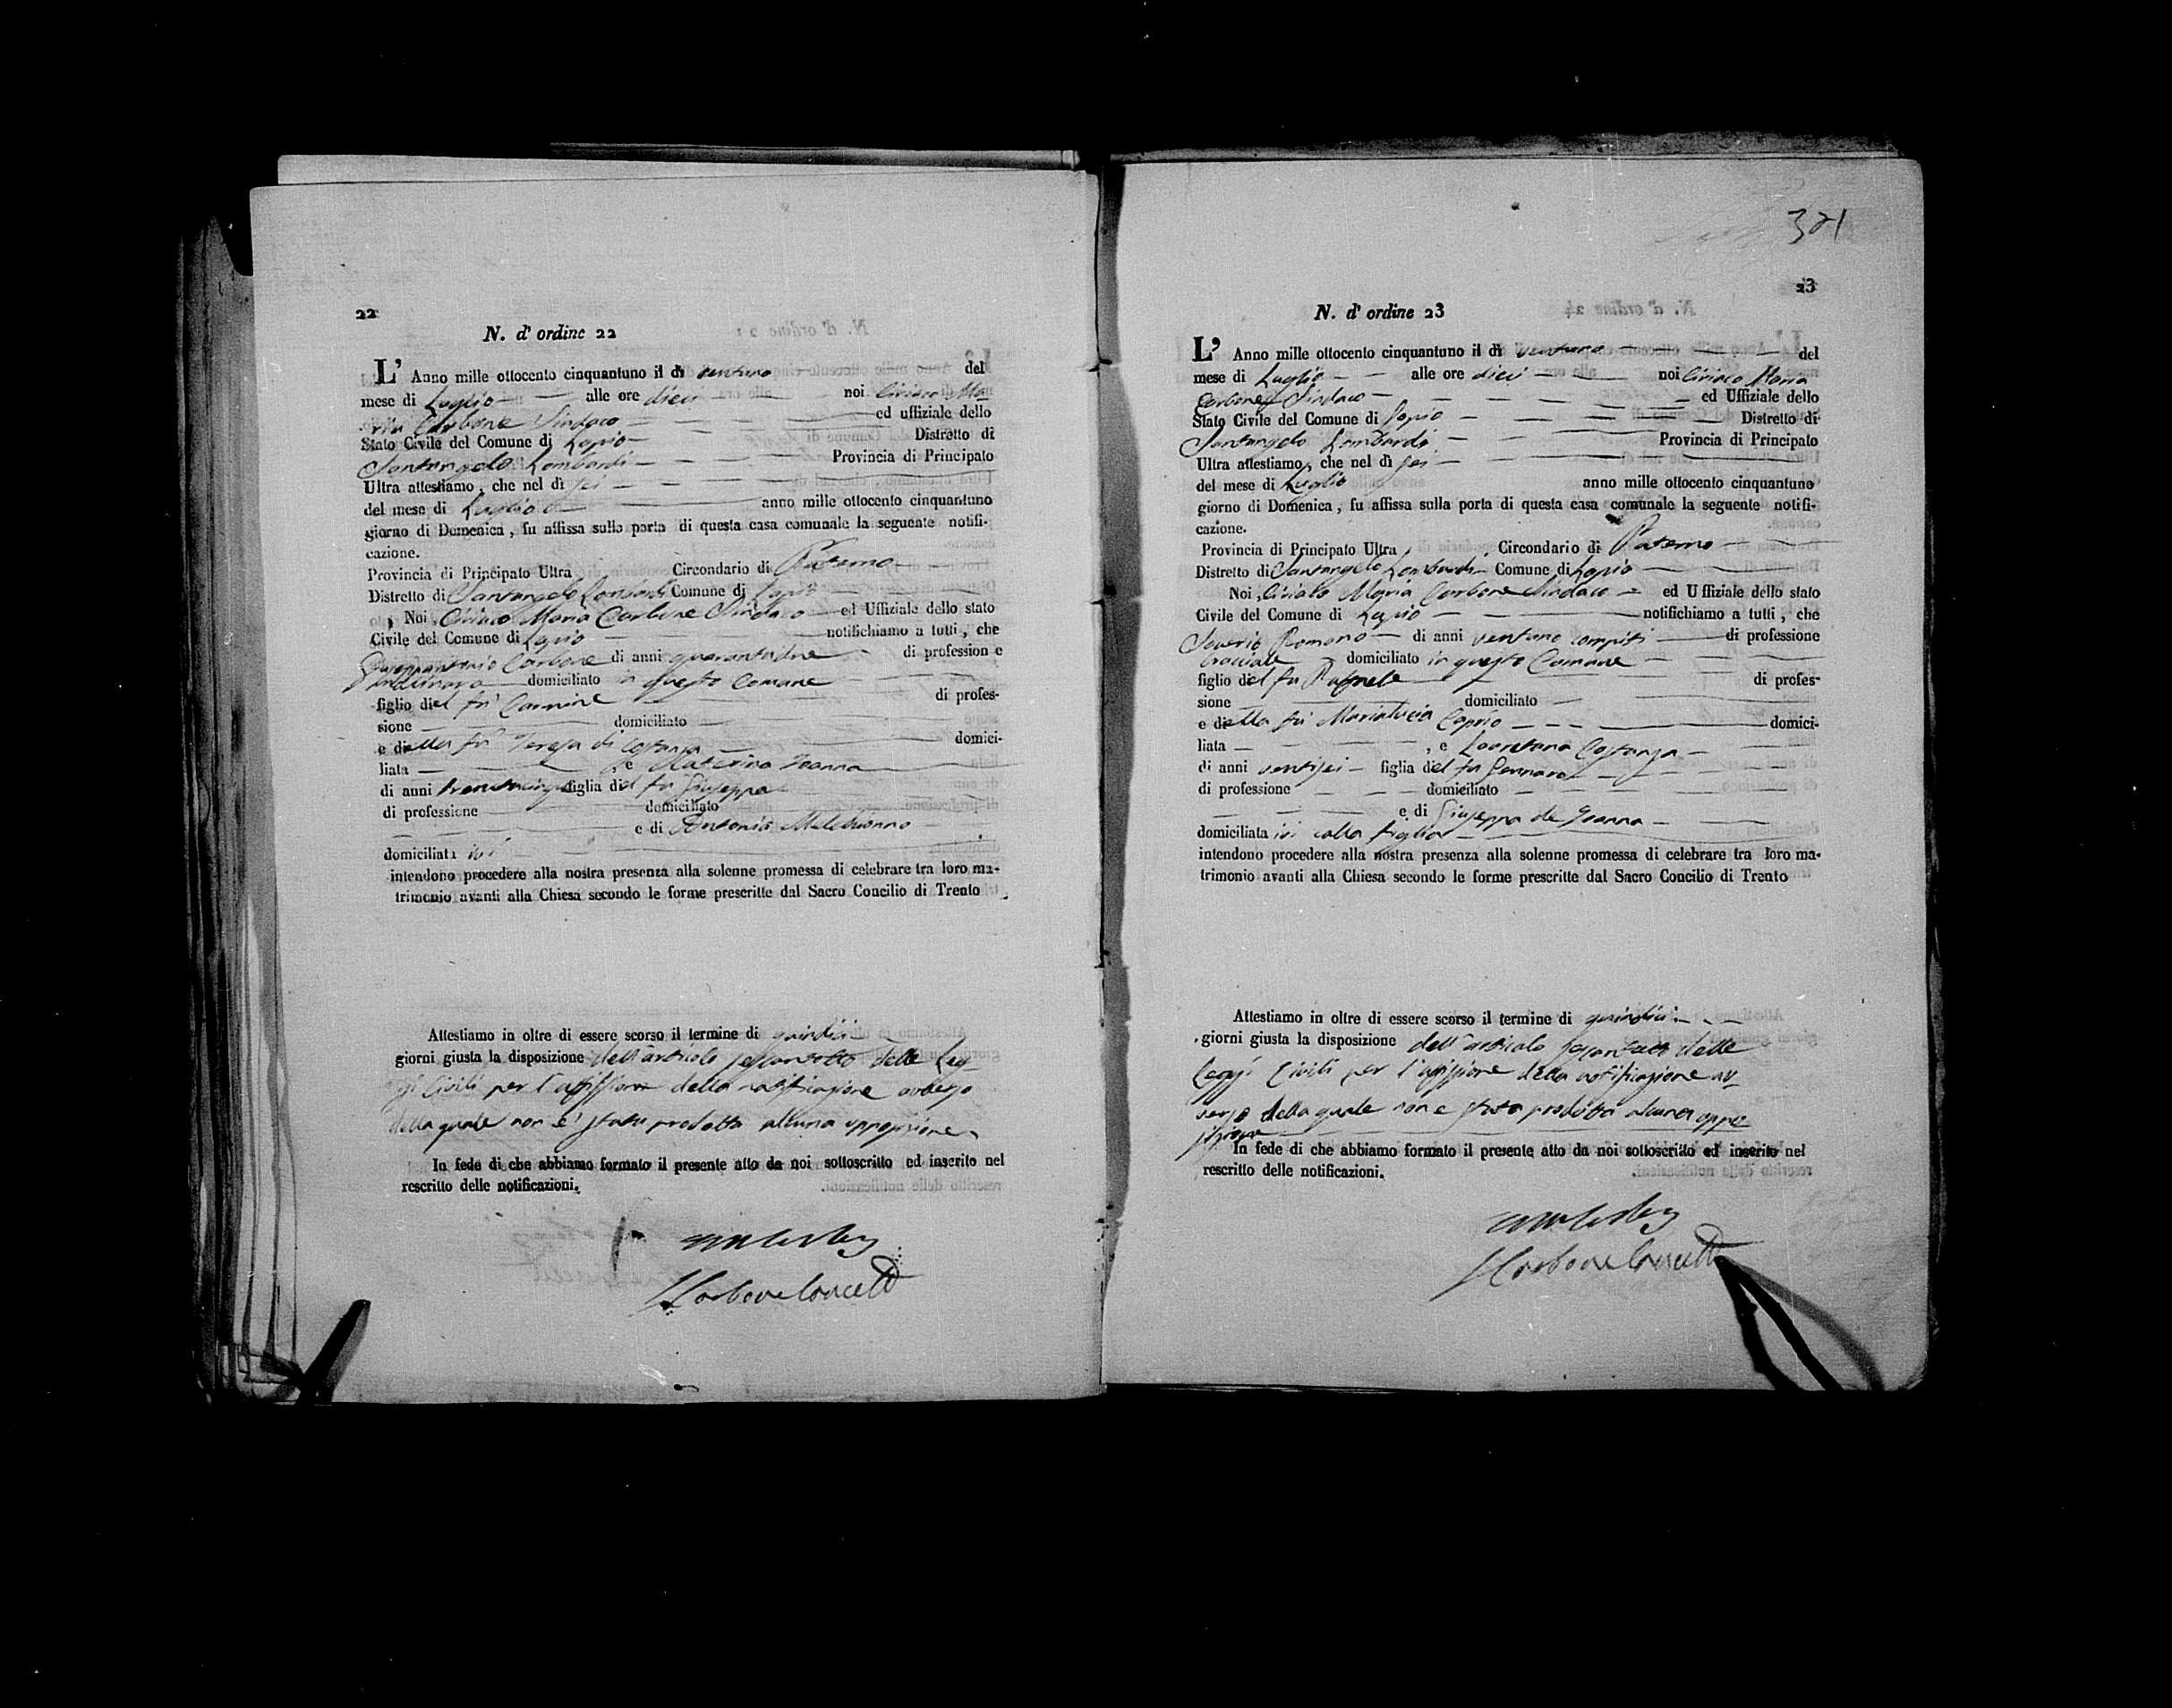 22
N. d' ordine 22
L' Anno mille ottocento cinquantuno il dì ventuno del
mese di Luglio alle ore dieci noi Ciriaco Ma-
ria Carbone Sindaco ed uffiziale dello
Stato Civile del Comune di Lapio Distretto di
Santangelo Lombardi Provincia di Principato
Ultra attestiamo, che nel dì sei
del mese di Luglio anno mille ottocento cinquantuno
giorno di Domenica, fu affissa sulla porta di questa casa comunale la seguente notifi-
cazione.
Provincia di Principato Ultra Circondario di Paterno
Distretto di Santangelo Lombardi Comune di Lapio
Noi Ciriaco Maria Carbone Sindaco ed Uffiziale dello stato
Civile del Comune di Lapio notifichiamo a tutti, che
Carbone di anni quarantadue di profession e
domiciliato in questo Comune
figlio del fù Carmine di profes-
sione domiciliato
e della fù Teresa di Costanza domici-
liata , e Caterina Ioanna
di anni trentacinque figlia del fu Giuseppe
di professione domiciliato
e di Antonia Melchionno
domiciliata ivi
intendono procedere alla nostra presenza alla solenne promessa di celebrare tra loro ma-
trimonio avanti alla Chiesa secondo le forme prescritte dal Sacro Concilio di Trento
Attestiamo in oltre di essere scorso il termine di quindici
giorni giusta la disposizione dell'articolo sessantotto delle Leg-
gi Civili per l'affissione della notificazione avverso
della quale non è stata prodotta alcuna opposizione
In fede di che abbiamo formato il presente atto da noi sottoscritto ed inscritto nel
rescritto delle notificazioni.
Carbone
321
23
N. d' ordine 23
L' Anno mille ottocento cinquantuno il dì ventuno del
mese di Luglio alle ore dieci noi Ciriaco Maria
Carbone Sindaco ed Uffiziale dello
Stato Civile del Comune di Lapio Distretto di
Santangelo Lombardi Provincia di Principato
Ultra attestiamo, che nel dì sei
del mese di Luglio anno mille ottocento cinquantuno
giorno di Domenica, fu affissa sulla porta di questa casa comunale la seguente notifi-
cazione.
Provincia di Principato Ultra, Circondario di Paterno
Distretto di Santangelo Lombardi Comune di Lapio
Noi Ciriaco Maria Carbone Sindaco ed Uffiziale dello stato
Civile del Comune di Lapio notifichiamo a tutti, che
Saverio Romano di anni ventuno compiti di professione
bracciale domiciliato in questo Comune
figlio del fu Rafaele di profes-
sione domiciliato
e della fù Marialucia Caprio domici-
liata , e Loretana Costanza
di anni ventisei figlia del fu Gennaro
di professione domiciliato
e di Giuseppa de Ioanna
domiciliata ivi colla figlia
intendono procedere alla nostra presenza alla solenne promessa di celebrare tra loro ma-
trimonio avanti alla Chiesa secondo le forme prescritte dal Sacro Concilio di Trento
Attestiamo in oltre di essere scorso il termine di quindici
giorni giusta la disposizione dell'articolo sessantotto delle
Leggi Civili per l'affissione della notificazione av-
verso della quale non è stata prodotta alcuna oppo-
sizione
In fede di che abbiamo formato il presente atto da noi sottoscritto ed inscritto nel
rescritto delle notificazioni.
Carbone